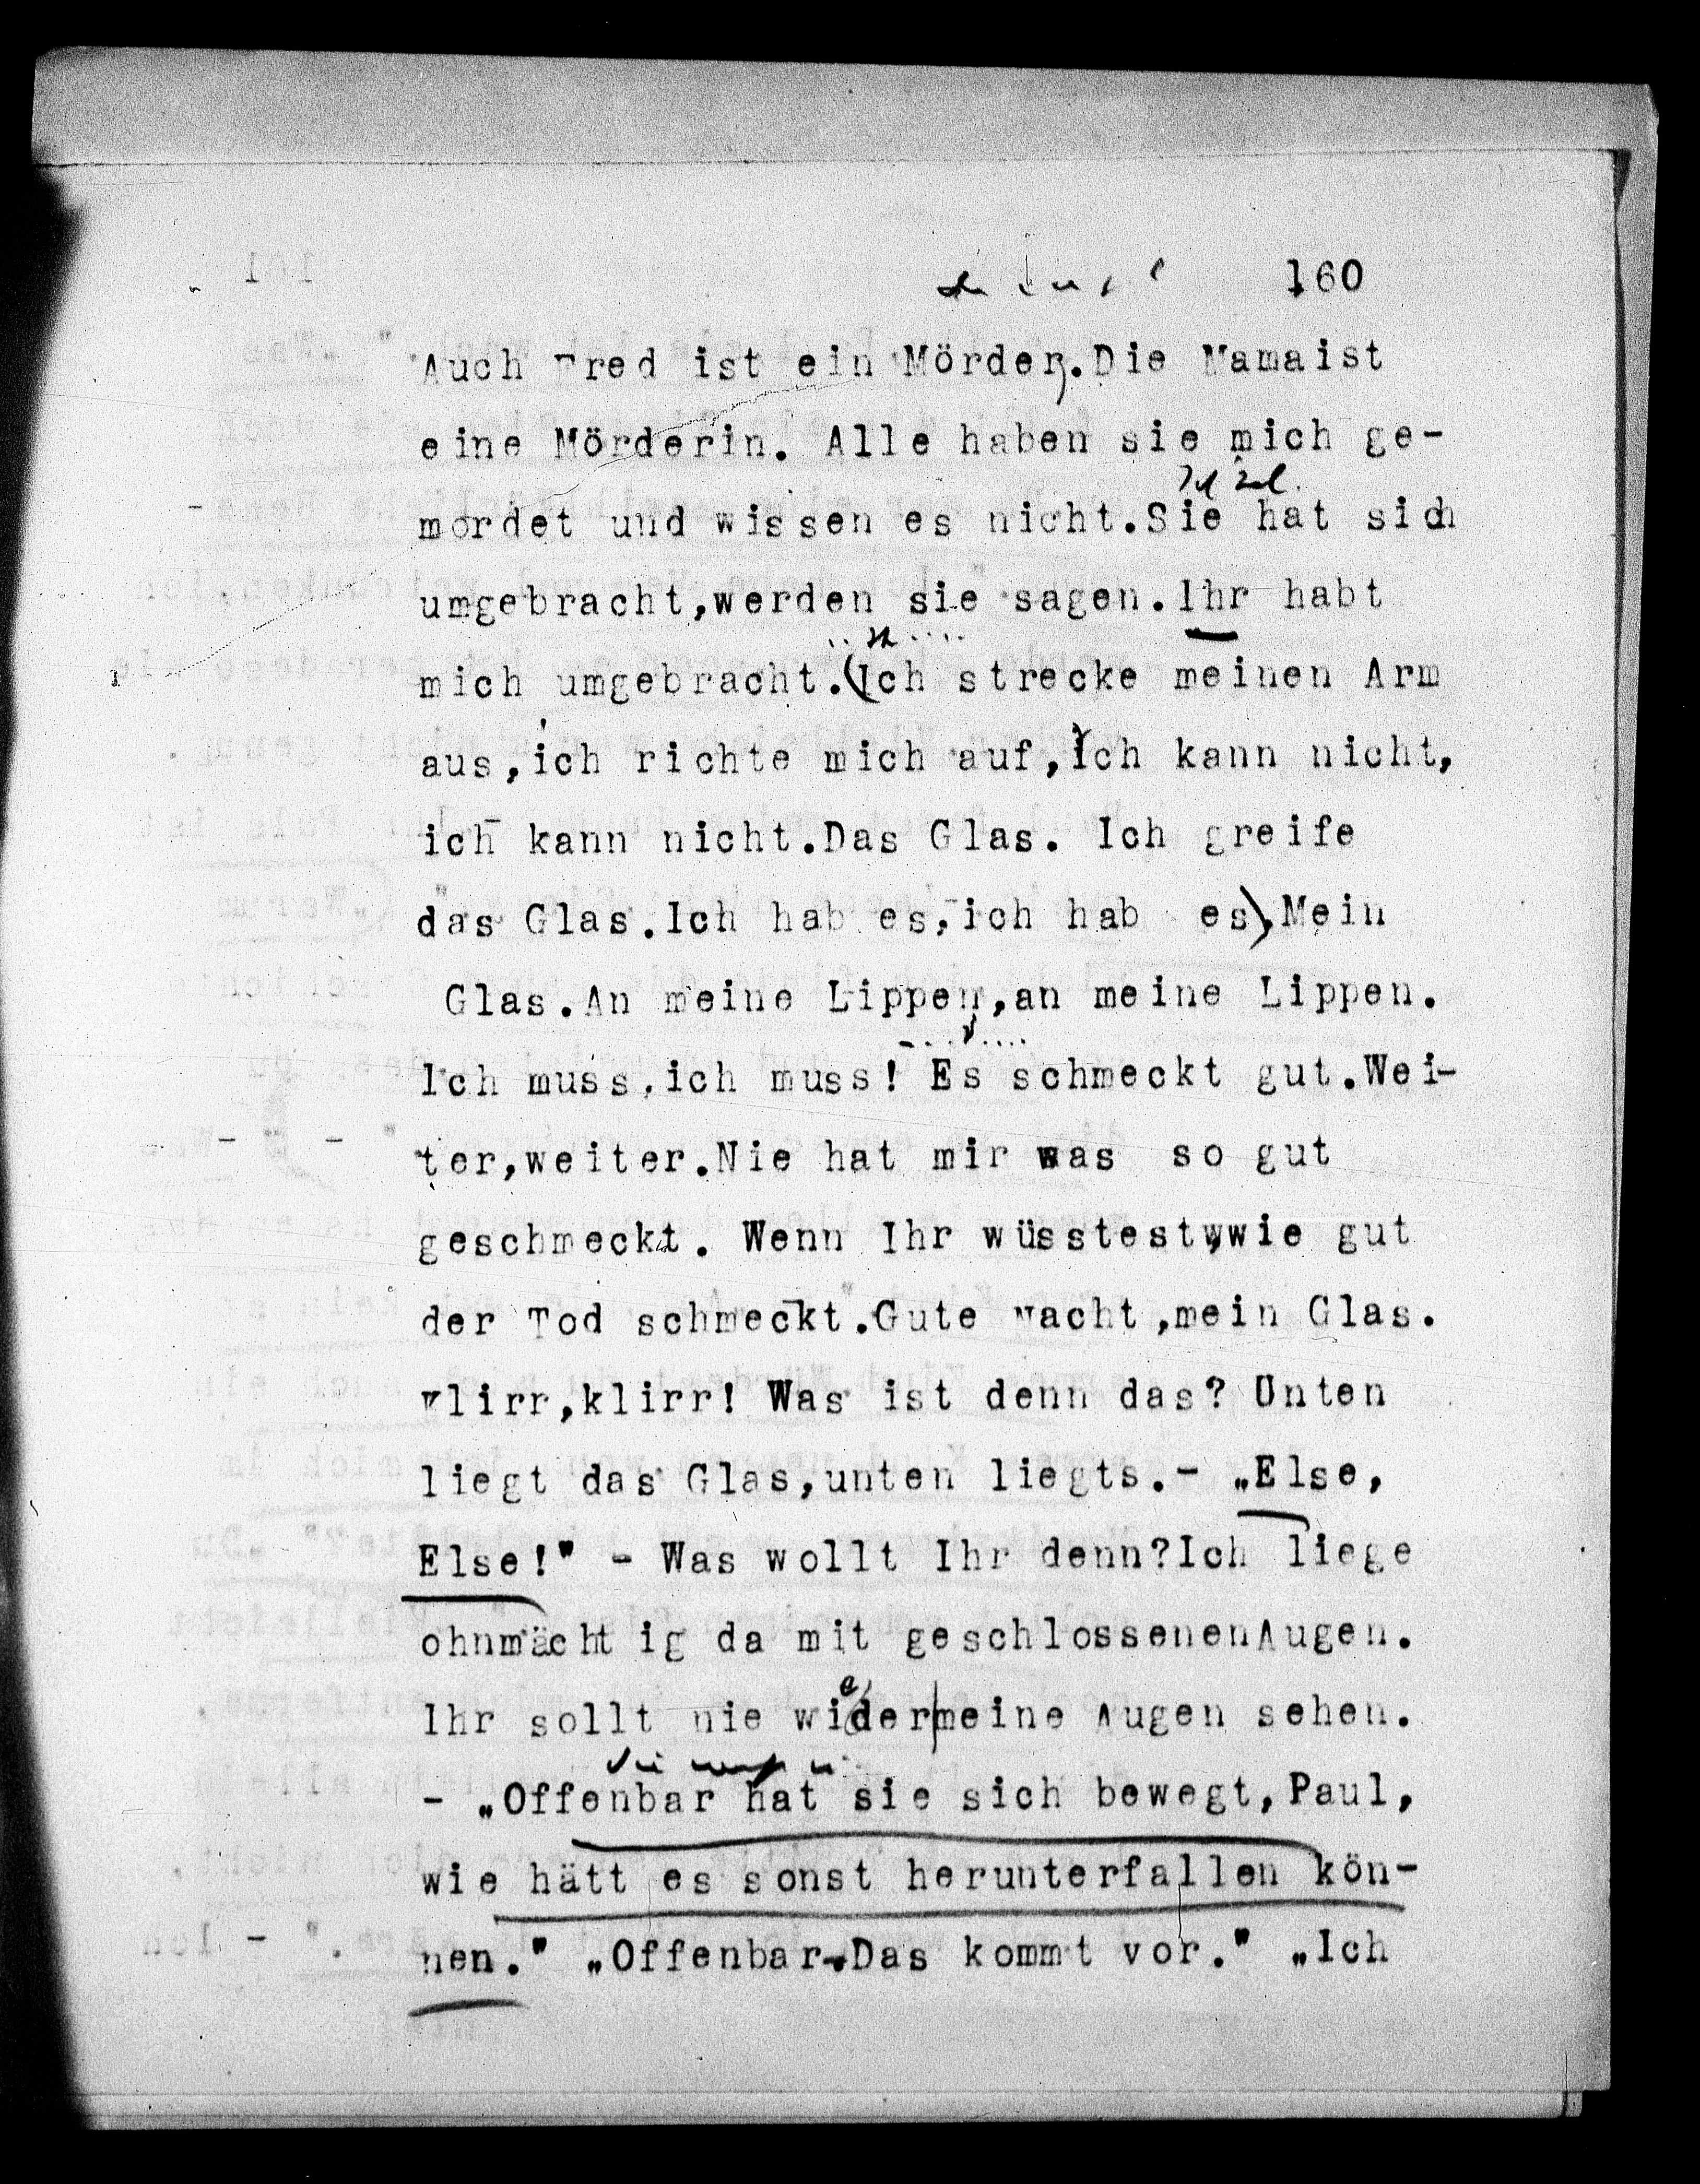 160
Auch Fred ist ein Mörder. Die Mamaist
eine Mörderin. Alle haben sie mich ge-
mordet und wissen es nicht. Sie hat sich
umgebracht, werden sie sagen. Ihr habt
mich umgebracht. (Ich strecke meinen Arm
aus, ich richte mich auf, ich kann nicht,
ich kann nicht. Das Glas. Ich greife
das Glas. Ich hab es, ich hab es). Mein
Glas. An meine Lippen, an meine Lippen.
Ich muss, ich muss! Es schmeckt gut. Wei-
ter, weiter. Nie hat mir was so gut
geschmeckt. Wenn Ihr wüsstest, wie gut
der Tod schmeckt. Gute Nacht, mein Glas.
Klirr, klirr! Was ist denn das? Unten
liegt das Glas, unten liegts. - „Else,
Else!" - Was wollt Ihr denn? Ich liege
ohnmächtig da mit geschlossenen Augen.
e
Ihr sollt nie wider meine Augen sehen.
- „Offenbar hat sie sich bewegt, Paul,
wie hätt es sonst herunterfallen kön-
nen." „Offenbar. Das kommt vor." „Ich